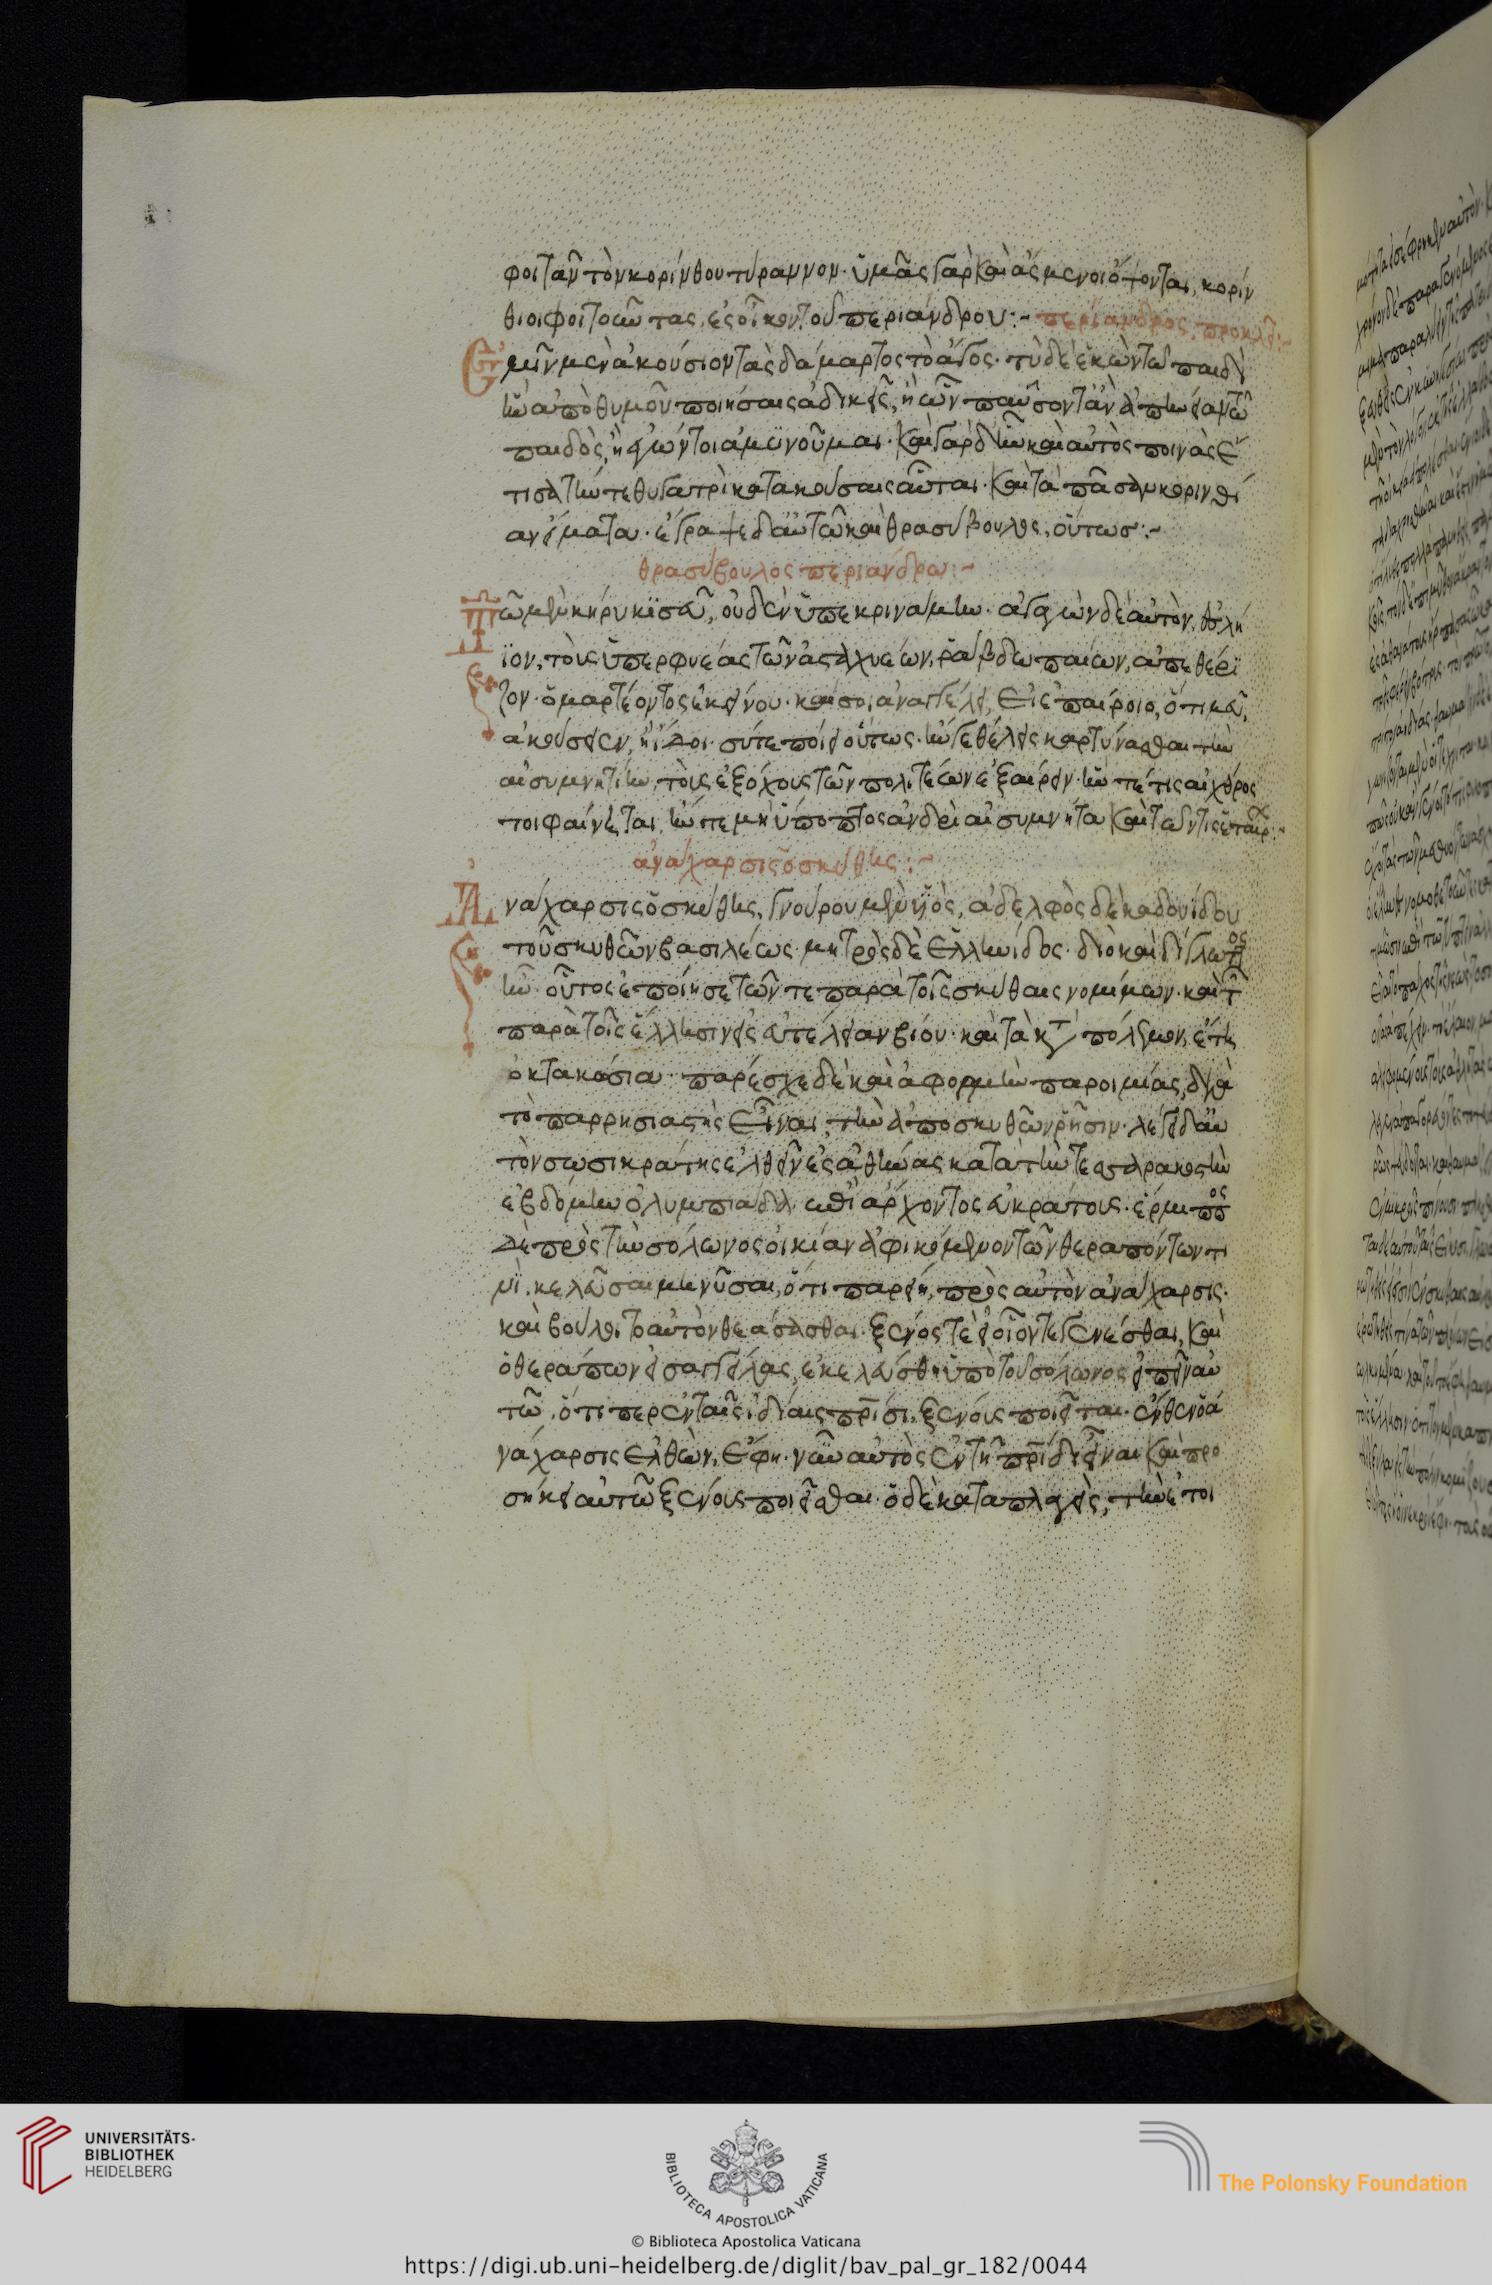 φοιτᾶν τὸν κορίνθου τύραννον. ὑμᾶς γὰρ καὶ ἄσμενοι ὄψονται, κορίν
θιοι φοιτοῶντας, ἐς οἶκον τοῦ περιάνδρου:- περίανδρος προκλεῖ:-
Ἐμὶν μὲν ἀκούσιον τᾶς δάμαρτος τὸ ἄγος. τὺ δὲ ἑκὼν τῶ παιδὶ
τῶ ἀπὸ θυμοῦ ποιήσαις ἀδικεῖς, ἢ ὦν παῦσον τὰν ἀπηνείαν τῶ
παιδὸς, ἢ ἐγών τοι ἀμυνοῦμαι. καὶ γὰρ δὴν καὶ αὐτὸς ποινὰς ἔ
τισα τήν τε θυγατρὶ κατακαύσαις αὗται. καὶ τὰ πᾶσαν κορινθί
αν εἵματα. ἔγραψε δ' αὐτῶ καὶ θρασύβουλος, οὕτως:-
θρασύβουλος περιάνδρω:-
Τῶ μὲν κήρυκι σεῦ, οὐδὲν ὑπεκρινάμην. ἀγαγὼν δὲ αὐτὸν, ἐς λή
ϊον, τοὺς ὑπερφυέας τῶν ἀσταχυέων, ῥάβδω παίων, ἀπεθέρι
ζον. ὁμαρτέοντος ἐκείνου. καί σοι ἀναγγελεῖ, εἰ ἐπαίροιο, ὅτι μευ,
ἀκούσειεν, ἢ ἴδοι. σύ τε ποίει οὕτως. ἤν γε θέλεις καρτύνασθαι τὴν
αἰσυμνητίην, τοὺς ἐξόχους τῶν πολιτέων ἐξαίρειν. ἤν τέ τις ἐχθρός
τοι φαίνηται, ἤν τε μὴ ὕποπτος ἀνδρὶ αἰσυμνήτα καὶ τῶν τις ἑταίρων:-
ἀνάχαρσις ὁ σκύθης:-
Ἀνάχαρσις ὁ σκύθης, γνούρου μὲν υἱὸς, ἀδελφὸς δὲ καδουίδου
τοῦ σκυθῶν βασιλέως. μητρὸς δὲ ἑλληνίδος. διὸ καὶ δίγλωττος
ἦν. οὗτος ἐποίησε τῶν τε παρὰ τοῖς σκύθαις νομίμων. καὶ τῶν
παρὰ τοῖς ἕλλησιν εἰς εὐτέλειαν βίου. καὶ τὰ κατὰ πόλεμον, ἔπη
ὀκτακόσια. παρέσχε δὲ καὶ ἀφορμὴν παροιμίας, διὰ
τὸ παρρησιαστὴς εἶναι, τὴν ἀπὸ σκυθῶν ῥῆσιν. λέγει δ' αὐ
τὸν σωσικράτης ἐλθεῖν εἰς ἀθήνας κατὰ τὴν τεσσαρακοστὴν
ἑβδόμην ὀλυμπιάδα. ἐπὶ ἄρχοντος εὐκράτους. ἕρμιππος
δὲ πρὸς τὴν σόλωνος οἰκίαν ἀφικόμενον τῶν θεραπόντων τι
νὶ. κελεῦσαι μηνῦσαι, ὅτι παρείη, πρὸς αὐτὸν ἀνάχαρσις.
καὶ βούλοιτο αὐτὸν θεάσασθαι. ξένος τε εἰ οἷόν τε γενέσθαι, καὶ
ὁ θεράπων εἰσαγγείλας, ἐκελεύσθη ὑπὸ τοῦ σόλωνος εἰπεῖν αὐ
τῶ, ὅτι περ ἐν ταῖς ἰδίαις πρίσι, ξένοις ποιεῖται. ἔνθεν ὁ ἀ
νάχαρσις ἐλθὼν, ἔφη. νῦν αὐτὸς ἐν τῆ πρίδι εἶναι καὶ προ
σήκει αὐτῶ ξένοις ποιεῖσθαι. ὁ δὲ καταπλαγεὶς, τὴν ἑτοι
UNIVERSITÄTS-
BIBLIOTHEK
HEIDELBERG
BIBLIOTECA APOSTOLICA VATICANA
The Polonsky Foundation
© Biblioteca Apostolica Vaticana
https://digi.ub.uni-heidelberg.de/diglit/bav_pal_gr_182/0044